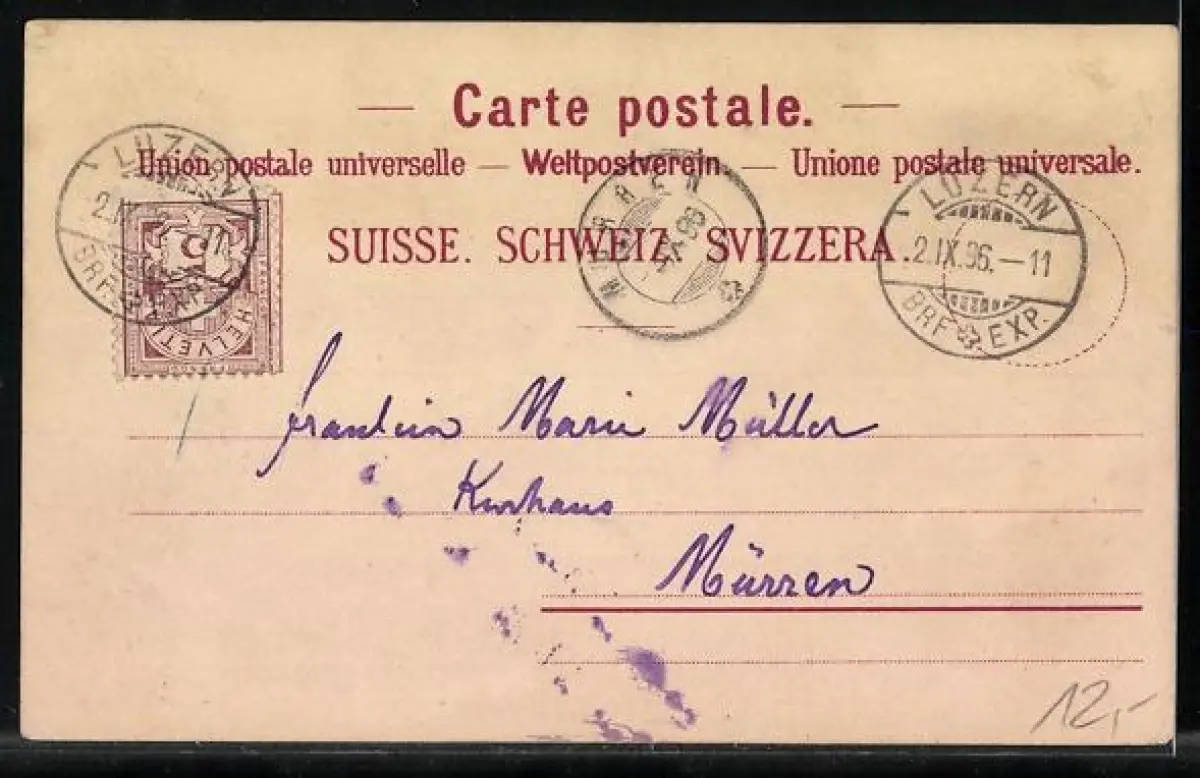 Carte postale.
Union postale universelle — Weltpostverein. — Unione postale universale.
SUISSE. SCHWEIZ. SVIZZERA.
LUZERN
2.IX.
11
BRF. EXP.
HELVETI
MÜRREN
IX.96
LUZERN
2.IX.96.—11
BRF. EXP.
Fräulein Marie Müller
Kurhaus
Mürren
12,-